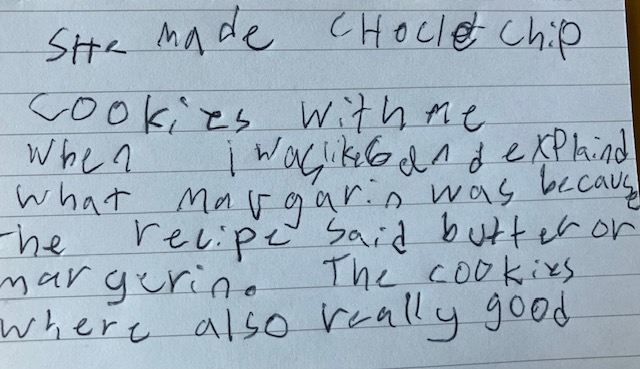 SHe made CHoclet chip
cookies with me
when i was like 6 and explaind
what margarin was because
the recipe said butter or
margerin. The cookies
where also really good